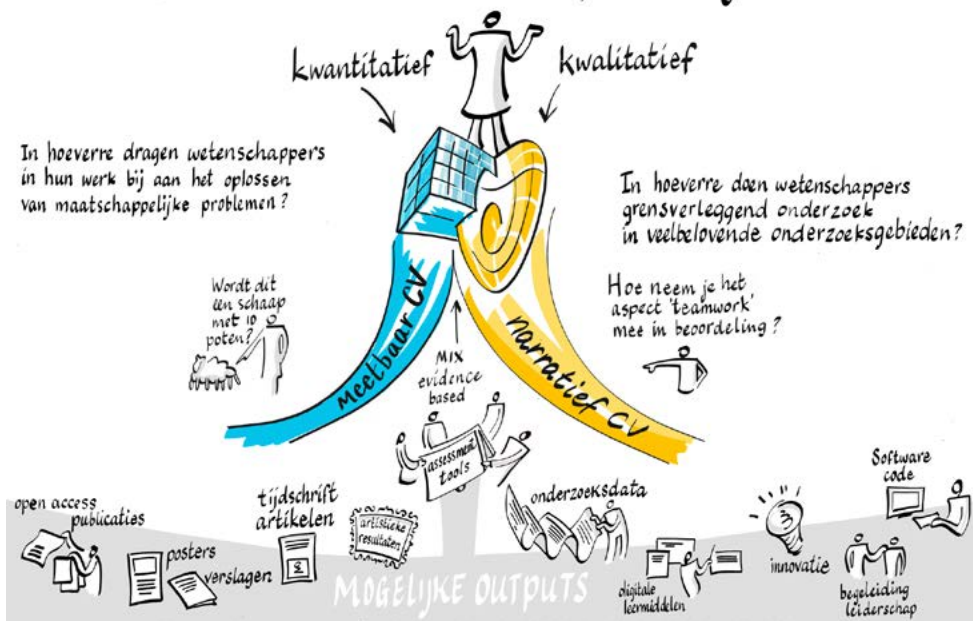 kwantitatief
kwalitatief
In hoeverre dragen wetenschappers
in hun werk bij aan het oplossen
van maatschappelijke problemen?
In hoeverre doen wetenschappers
grensverleggend onderzoek
in veelbelovende onderzoeksgebieden?
Wordt dit
een schaap
met 10
poten?
Hoe neem je het
aspect 'teamwork'
mee in beoordeling?
meetbaar CV
narratief CV
MIX
evidence
based
assessment
tools
open access
publicaties
posters
verslagen
tijdschrift
artikelen
artistieke
resultaten
onderzoeksdata
digitale
leermiddelen
innovatie
begeleiding
leiderschap
Software
code
MOGELIJKE OUTPUTS